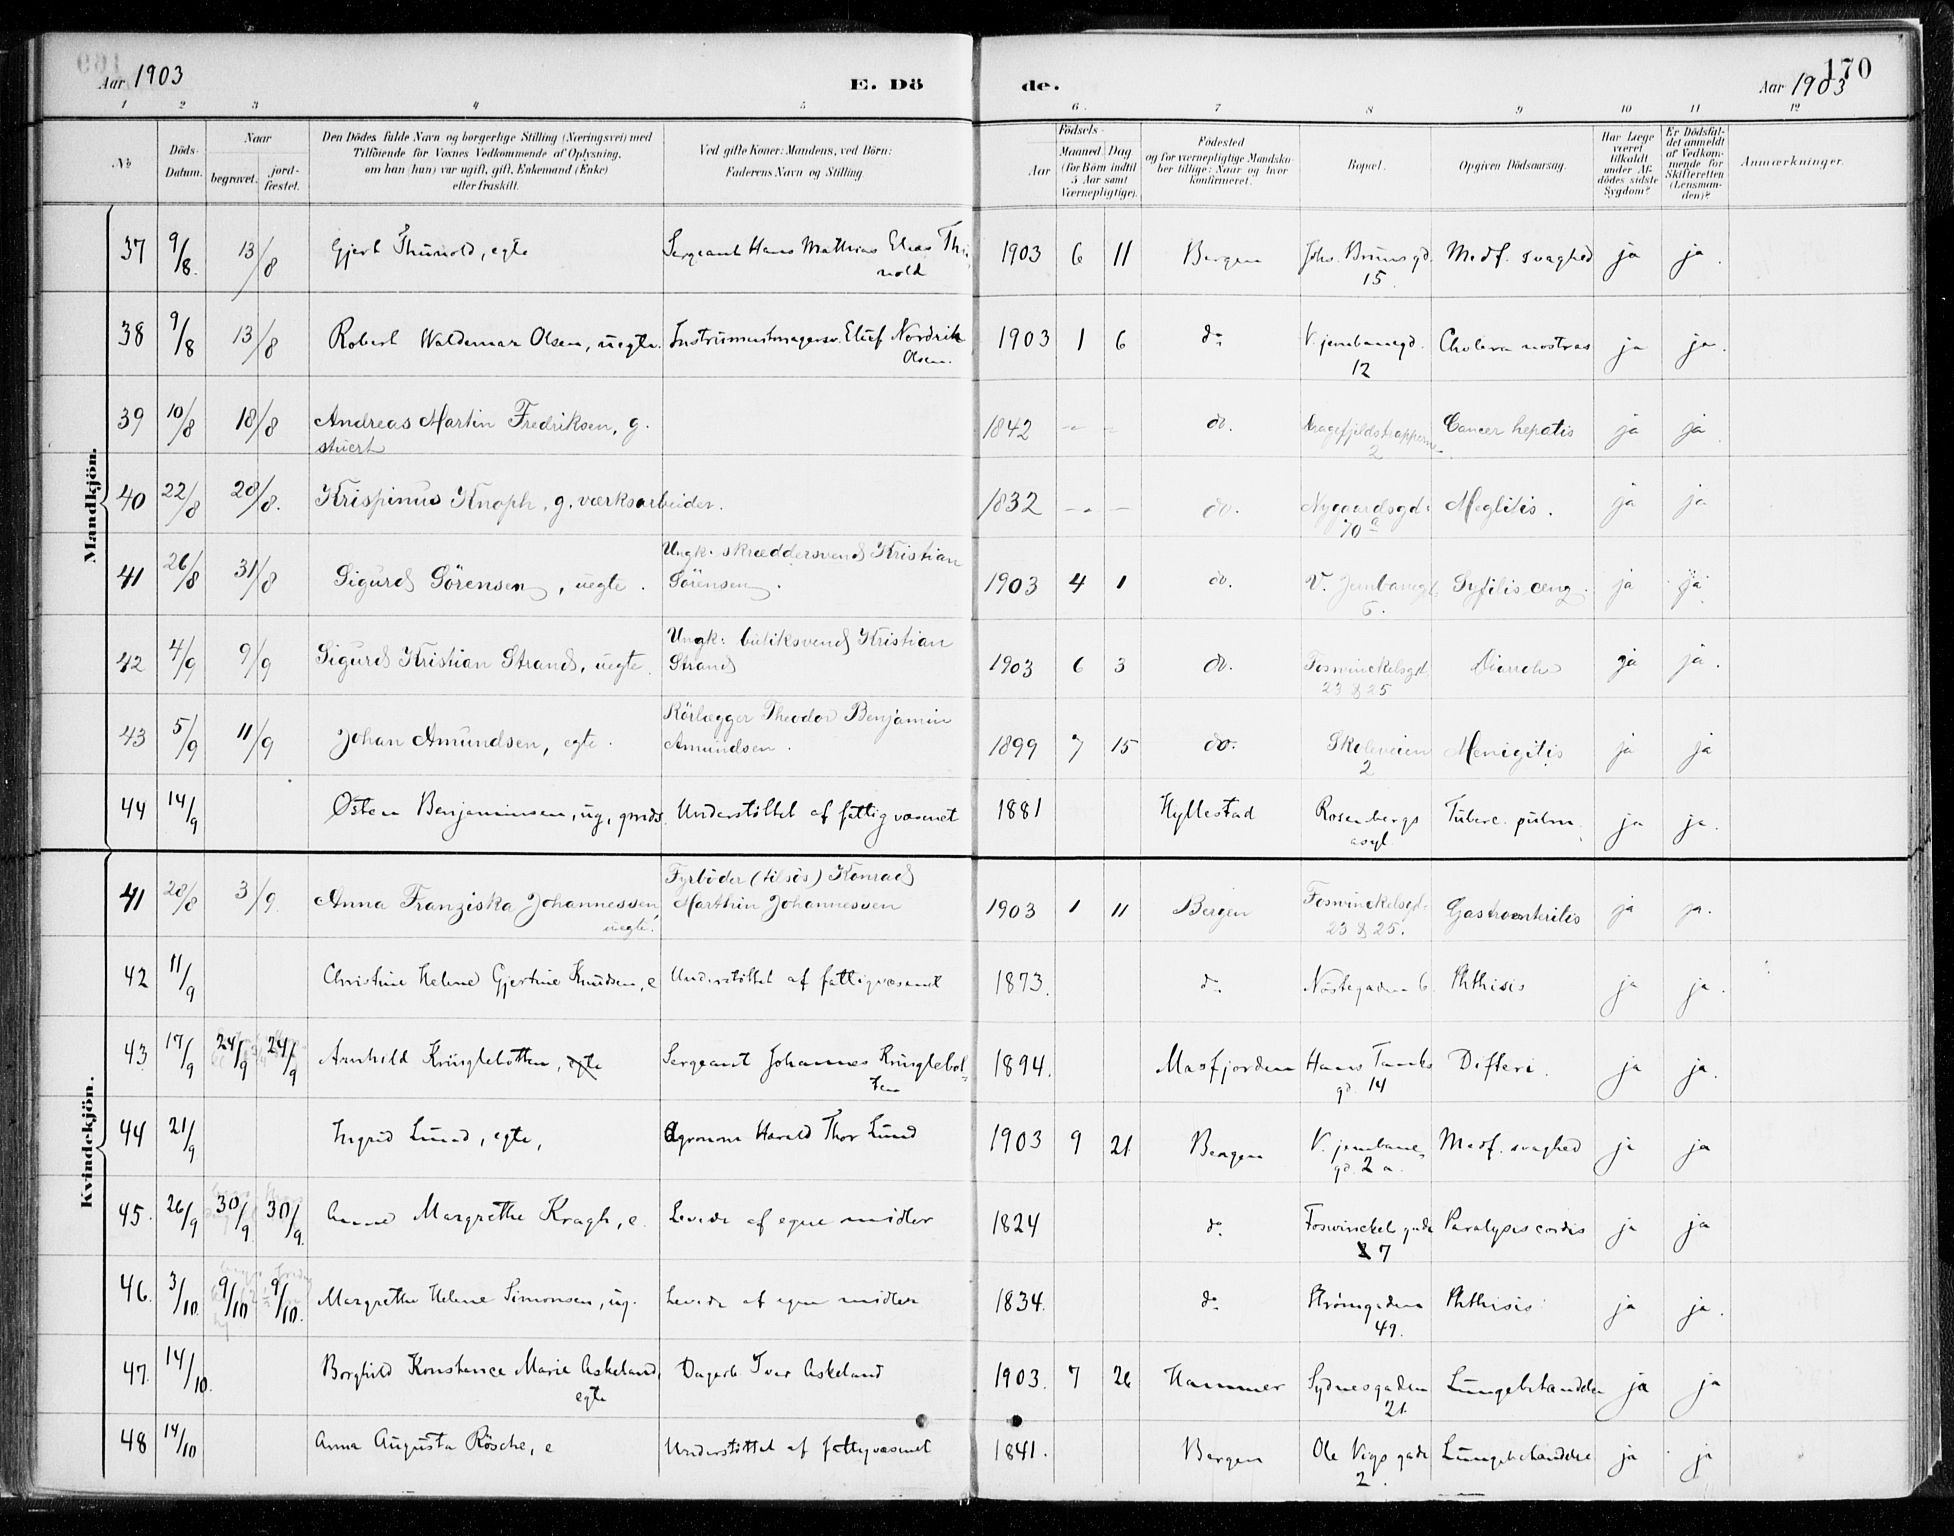 Aar 1903
E. Dö
de.
Aar 1903
170
1 2 3 4 5 6. 7 8 9 10 11 12
No
Döds-
Datum.
Naar
begravet.
jord-
fæstet.
Den Dödes fulde Navn og borgerlige Stilling (Næringsvei) med
Tilföiende for Voxnes Vedkommende af Oplysning,
om han (hun) var ugift, gift, Enkemand (Enke)
eller fraskilt.
Ved gifte Koner: Mandens, ved Börn:
Faderens Navn og Stilling.
Födsels-
Aar
Maaned
Dag
(for Börn indtil
5 Aar samt
Værnepligtige).
Födested
og for værnepligtige Mandsko-
ber tillige: Naar og hvor
konfirmeret.
Bopæl.
Opgiven Dödsaarsag.
Har Læge
været
tilkaldt
under Af-
dödes sidste
Sygdom?
Er Dödsfal-
det anmeldt
af Vedkom-
mende for
Skifteretten
(Lensman-
den)?
Anmærkninger.
Mandkjön.
37 9/8. 13/8 Gjert Thunold, egte Sergeant Hans Mathias Elias Thu-
nold 1903 6 11 Bergen Johs. Bruns gd.
15. Medf. svaghed ja ja.
38 9/8 13/8 Robert Waldemar Olsen, uegte. Instrumentmagersv. Eluf Nordrik
Olsen. 1903 1 6 do V. jernbanegd.
12 Cholera nostras ja ja.
39 10/8 18/8 Andreas Martin Fredriksen, g.
stuert 1842 - - do. Dragefjeldstrapperne
2 Cancer hepatis ja ja.
40 22/8 28/8. Krispinus Knoph, g. værksarbeider. 1832 - - do. Nygaardsgd.
70 a Meglitis. ja ja
41 26/8 31/8 Sigurd Sörensen, uegte. Ungk. skræddersvend Kristian
Sörensen. 1903 4 1 do. V. Jernbanegd.
6. Syfilis cong. ja ja
42 4/9 9/9 Sigurd Kristian Strand, uegte. Ungk: butiksvend Kristian
Strand 1903 6 3 do. Foswinckelsgd.
23 & 25 Diarrch ja ja.
43 5/9 11/9 Johan Amundsen, egte. Rörlægger Theodor Benjamin
Amundsen. 1899 7 15 do. Skoleveien
2 Menigitis ja ja
44 14/9 Østen Benjaminsen, ug, gmds. Understöttet af fattigvæsenet 1881 Hyllestad Rosenbergs
asyl Tuberc. pulm. ja ja.
Kvindekjön.
41 28/8 3/9. Anna Franziska Johannessen
uegte. Fyrböder (tilsös) Konrad
Marthin Johannessen 1903 1 11 Bergen Foswinckelsgd.
23 & 25. Gastroenteritis ja ja.
42 11/9 Christine Helene Gjertine Knudsen, e Understöttet af fattigvæsenet 1873. do Nöstegaden 6. Phthisis ja ja.
43 17/9 24/9 24/9 Arnhild Kringlebotten, egte Sergeant Johannes Kringlebot-
ten 1894. Masfjorden Hans Tanks
gd. 14 Difteri. ja ja.
44 21/9 Ingrid Lund, egte, Agronom Harald Thor Lund 1903 9 21. Bergen V. jernbane-
gd. 2 a. Medf. svaghed ja ja
45. 26/9 30/9 30/9. Anne Margrethe Kragh, e. Levede af egne midler 1824 do Foswinckel gade
7 Paralysis cordis ja ja
46. 3/10. 9/10 9/10. Margrethe Helene Simonsen, ug. Levede af egne midler 1834. do Strömgaden
49. Phthisis ja ja.
47. 14/10. Borghild Konstance Marie Askeland,
egte Dagarb. Ivar Askeland 1903. 7 26 Hammer Sydnesgaden
21. Lungebetændelse ja ja
48 14/10 Anna Augusta Rösche, e Understöttet af fattigvæsenet 1841. Bergen Ole Vigs gade
2. Lungebetændelse ja ja